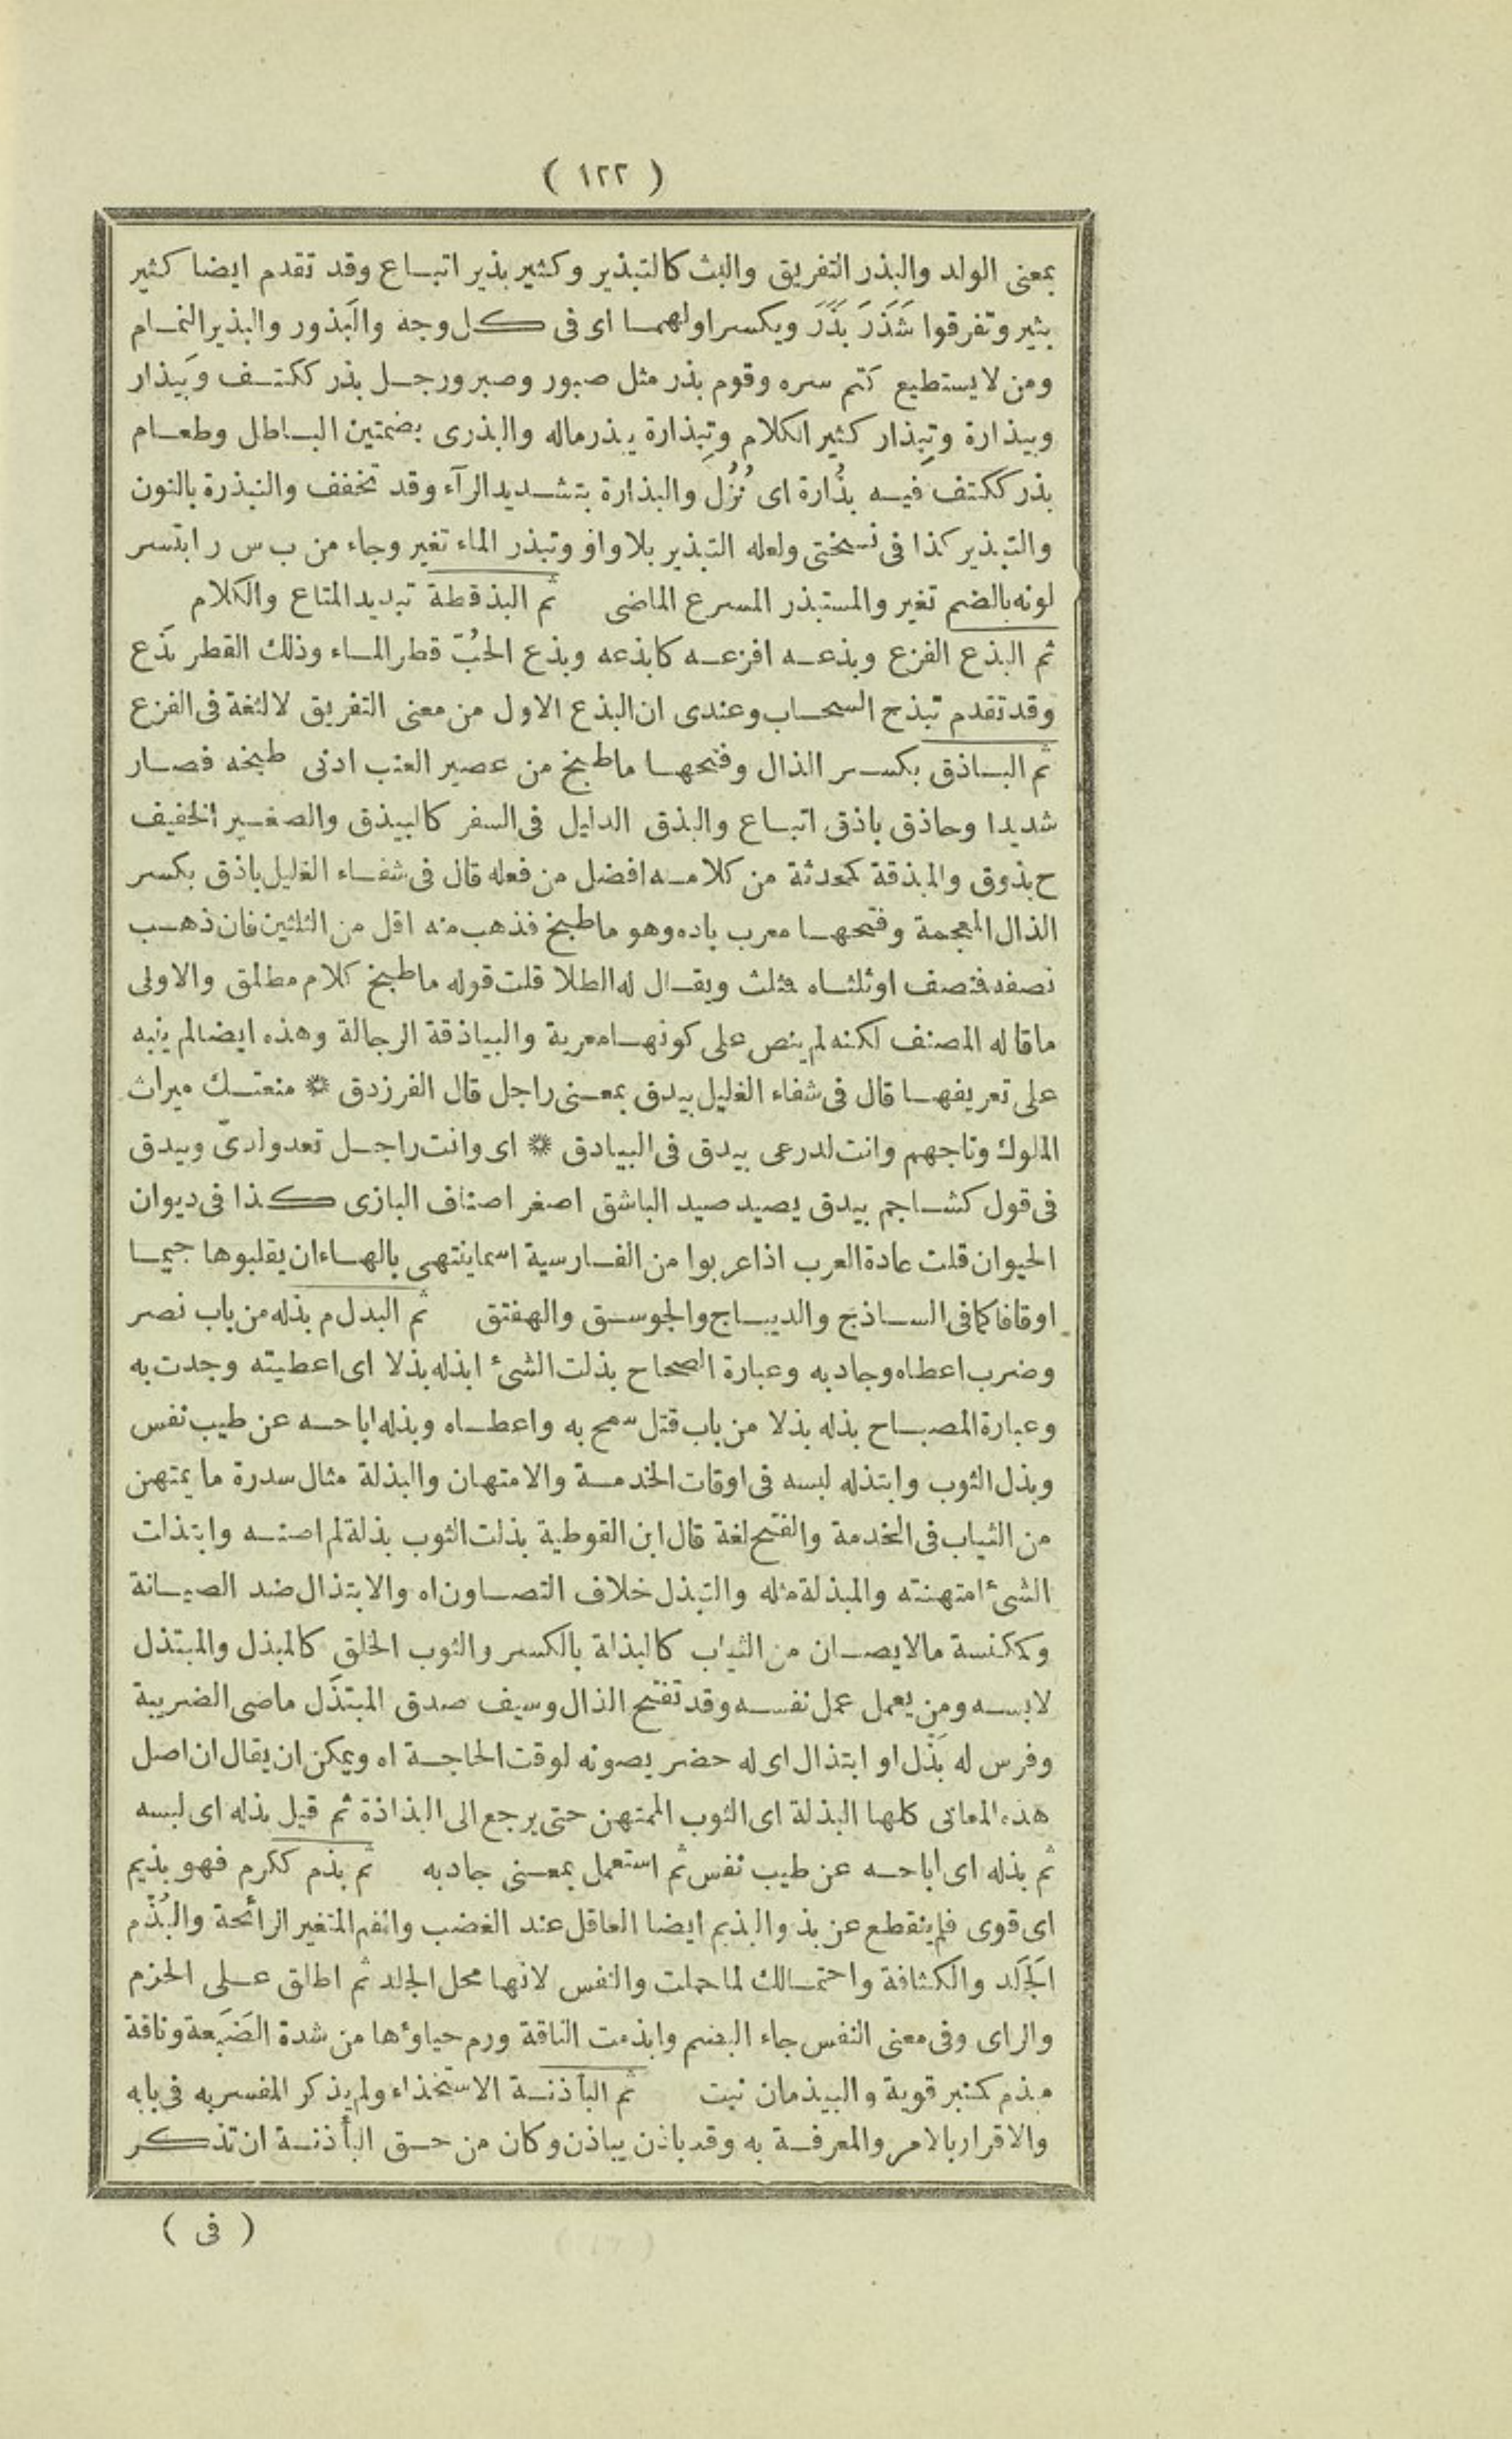 ( ١٢٢ )
بمعنى الولد والبذر التفريق والبث كالتبذير وكثير بذير اتباع وقد تقدم ايضا كثير
بثير وتفرقوا شَذَرَ بَذَرَ ويكسر اولهما اى فى كل وجه والبَذور والبذير النمام
ومن لا يستطيع كتم سره وقوم بذر مثل صبور وصبر ورجل بذر ككتف وبَيذار
وبيذارة وتِبِذار كثير الكلام وتِبِذارة يبذر ماله والبذرى بضمتين الباطل وطعام
بذر ككتف فيه بذُارة اى نُزُل والبذارة بتشديد الرآء وقد تخفف والنبذرة بالنون
والتبذير كذا فى نسختى ولعله التبذير بلا واو وتبذر الماء تغير وجاء من ب س ر ابتسر
لونه بالضم تغير والمستبذر المسرع الماضى ثم البذقطة تبديد المتاع والكلام
ثم البذع الفزع وبذعه افزعه كابذعه وبذع الحُبّ قطر الماء وذلك القطر بَذع
وقد تقدم تبذح السحاب وعندى ان البذع الاول من معنى التفريق لا لثغة فى الفزع
ثم الباذق بكسر الذال وفتحها ما طبخ من عصير العنب ادنى طبخه فصار
شديدا وحاذق باذق اتباع والبذق الدليل فى السفر كالبيذق والصغير الخفيف
ج بذوق والمبذقة كمحدثة من كلامه افضل من فعله قال فى شفاء الغليل باذق بكسر
الذال المعجمة وفتحها معرب باده وهو ما طبخ فذهب منه اقل من الثلثين فان ذهب
نصفه فنصف او ثلثاه فثلث ويقال له الطلا قلت قوله ما طبخ كلام مطلق والاولى
ما قاله المصنف لكنه لم ينص على كونها معربة والبياذقة الرجالة وهذه ايضا لم ينبه
على تعريفها قال فى شفاء الغليل بيدق بمعنى راجل قال الفرزدق * منعتك ميراث
الملوك وتاجهم وانت لدرعى بيدق فى البيادق * اى وانت راجل تعدو ادىّ وبيدق
فى قول كشاجم بيدق يصيد صيد الباشق اصغر اصناف البازى كذا فى ديوان
الحيوان قلت عادة العرب اذا عربوا من الفارسية اسما ينتهى بالهاء ان يقلبوها جيما
او قافا كما فى الساذج والديباج والجوسق والهفتق ثم البذل م بذله من باب نصر
وضرب اعطاه وجاد به وعبارة الصحاح بذلت الشئ ابذله بذلا اى اعطيته وجدت به
وعبارة المصباح بذله بذلا من باب قتل سمح به واعطاه وبذله اباحه عن طيب نفس
وبذل الثوب وابتذله لبسه فى اوقات الخدمة والامتهان والبذلة مثال سدرة ما يمتهن
من الثياب فى الخدمة والفتح لغة قال ابن القوطية بذلت الثوب بذلة لم اصنه وابتذلت
الشئ امتهنته والمبذلة مثله والتبذل خلاف التصاون اه والابتذال ضد الصيانة
وككنسة ما لا يصان من الثياب كالبذلة بالكسر والثوب الخلق كالمبذل والمبتذل
لابسه ومن يعمل عمل نفسه وقد تفتح الذال وسيف صدق المبتذَل ماضى الضريبة
وفرس له بَذْل او ابتذال اى له حضر يصونه لوقت الحاجة اه ويمكن ان يقال ان اصل
هذه المعانى كلها البذلة اى الثوب الممتهن حتى يرجع الى البذاذة ثم قيل بذله اى لبسه
ثم بذله اى اباحه عن طيب نفس ثم استعمل بمعنى جاد به ثم بذم ككرم فهو بذيم
اى قوى فلم ينقطع عن بذ والبذيم ايضا العاقل عند الغضب والفم المتغير الرائحة والبُذْم
الجَلَد والكثافة واحتمالك لما حملت والنفس لانها محل الجلد ثم اطلق على الحزم
والراى وفى معنى النفس جاء البضم وابذمت الناقة ورم حياؤها من شدة الضَبَعة وناقة
مبذم كمنبر قوية والبيذمان نبت ثم البأذنة الاستخذاء ولم يذكر المفسر به فى بابه
والاقرار بالامر والمعرفة به وقد باذن يباذن وكان من حق البأذنة ان تذكر
( فى )